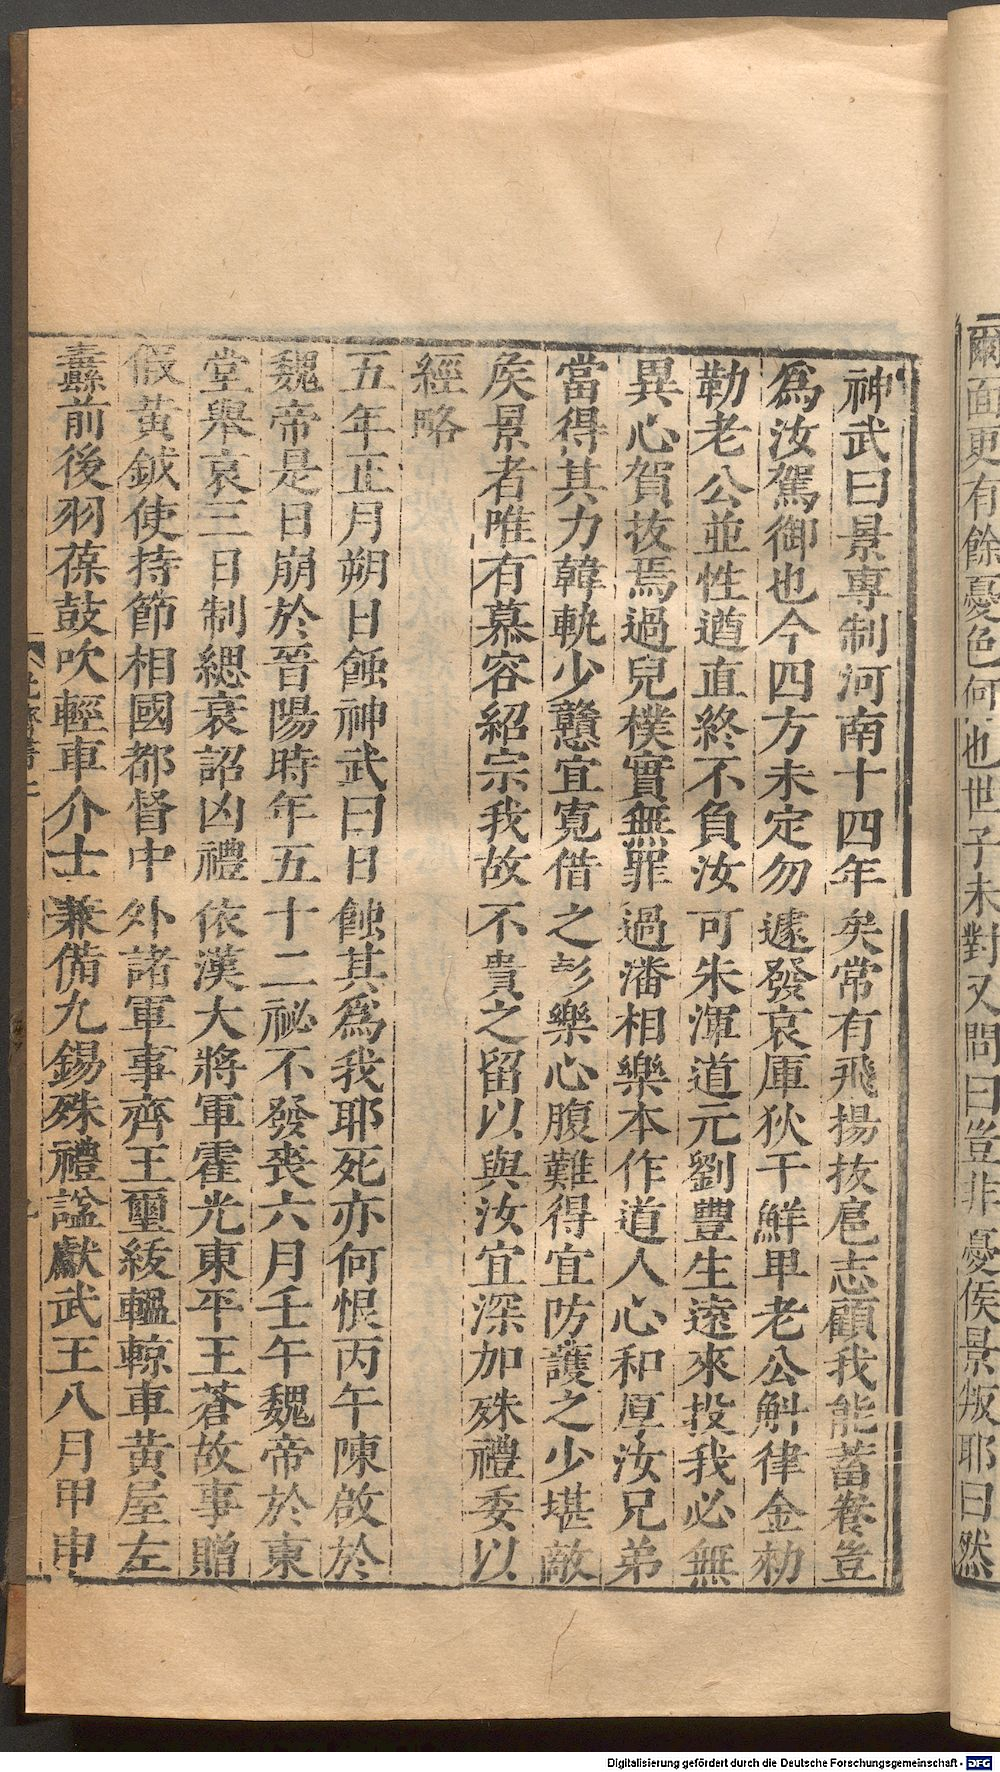 爾面更有餘憂色何也世子未對又問曰豈非憂侯景叛耶曰然
神武曰景專制河南十四年矣常有飛揚抜扈志顧我能蓄養豈
爲汝駕御也今四方未定勿遽發哀庫狄干鮮卑老公斛律金勑
勒老公並性遒直終不負汝可朱渾道元劉豐生遠來投我必無
異心賀抜焉過兒樸實無罪過潘相樂本作道人心和厚汝兄弟
當得其力韓軌少戇宜寬借之彭樂心腹難得宜防護之少堪敵
矦景者唯有慕容紹宗我故不貴之留以與汝宜深加殊禮委以
經略
五年正月朔日蝕神武曰日蝕其爲我耶死亦何恨丙午陳啟於
魏帝是日崩於晉陽時年五十二祕不發喪六月壬午魏帝於東
堂舉哀三日制緦衰詔凶禮依漢大將軍霍光東平王蒼故事贈
假黃鉞使持節相國都督中外諸軍事齊王璽紱轀輬車黃屋左
纛前後羽葆鼓吹輕車介士兼備九錫殊禮諡獻武王八月甲申
Digitalisierung gefördert durch die Deutsche Forschungsgemeinschaft - DFG